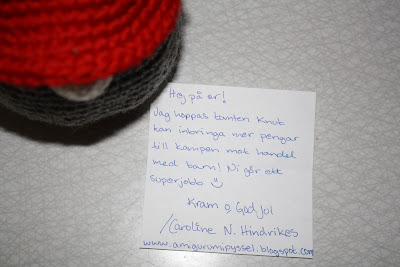 Hej på er!
Jag hoppas tomten Knut
kan inbringa mer pengar
till kampen mot handel
med barn! Ni gör ett
superjobb ☺
Kram o God Jol
/Caroline N. Hindrikes
www.amigurumipyssel.blogspot.com